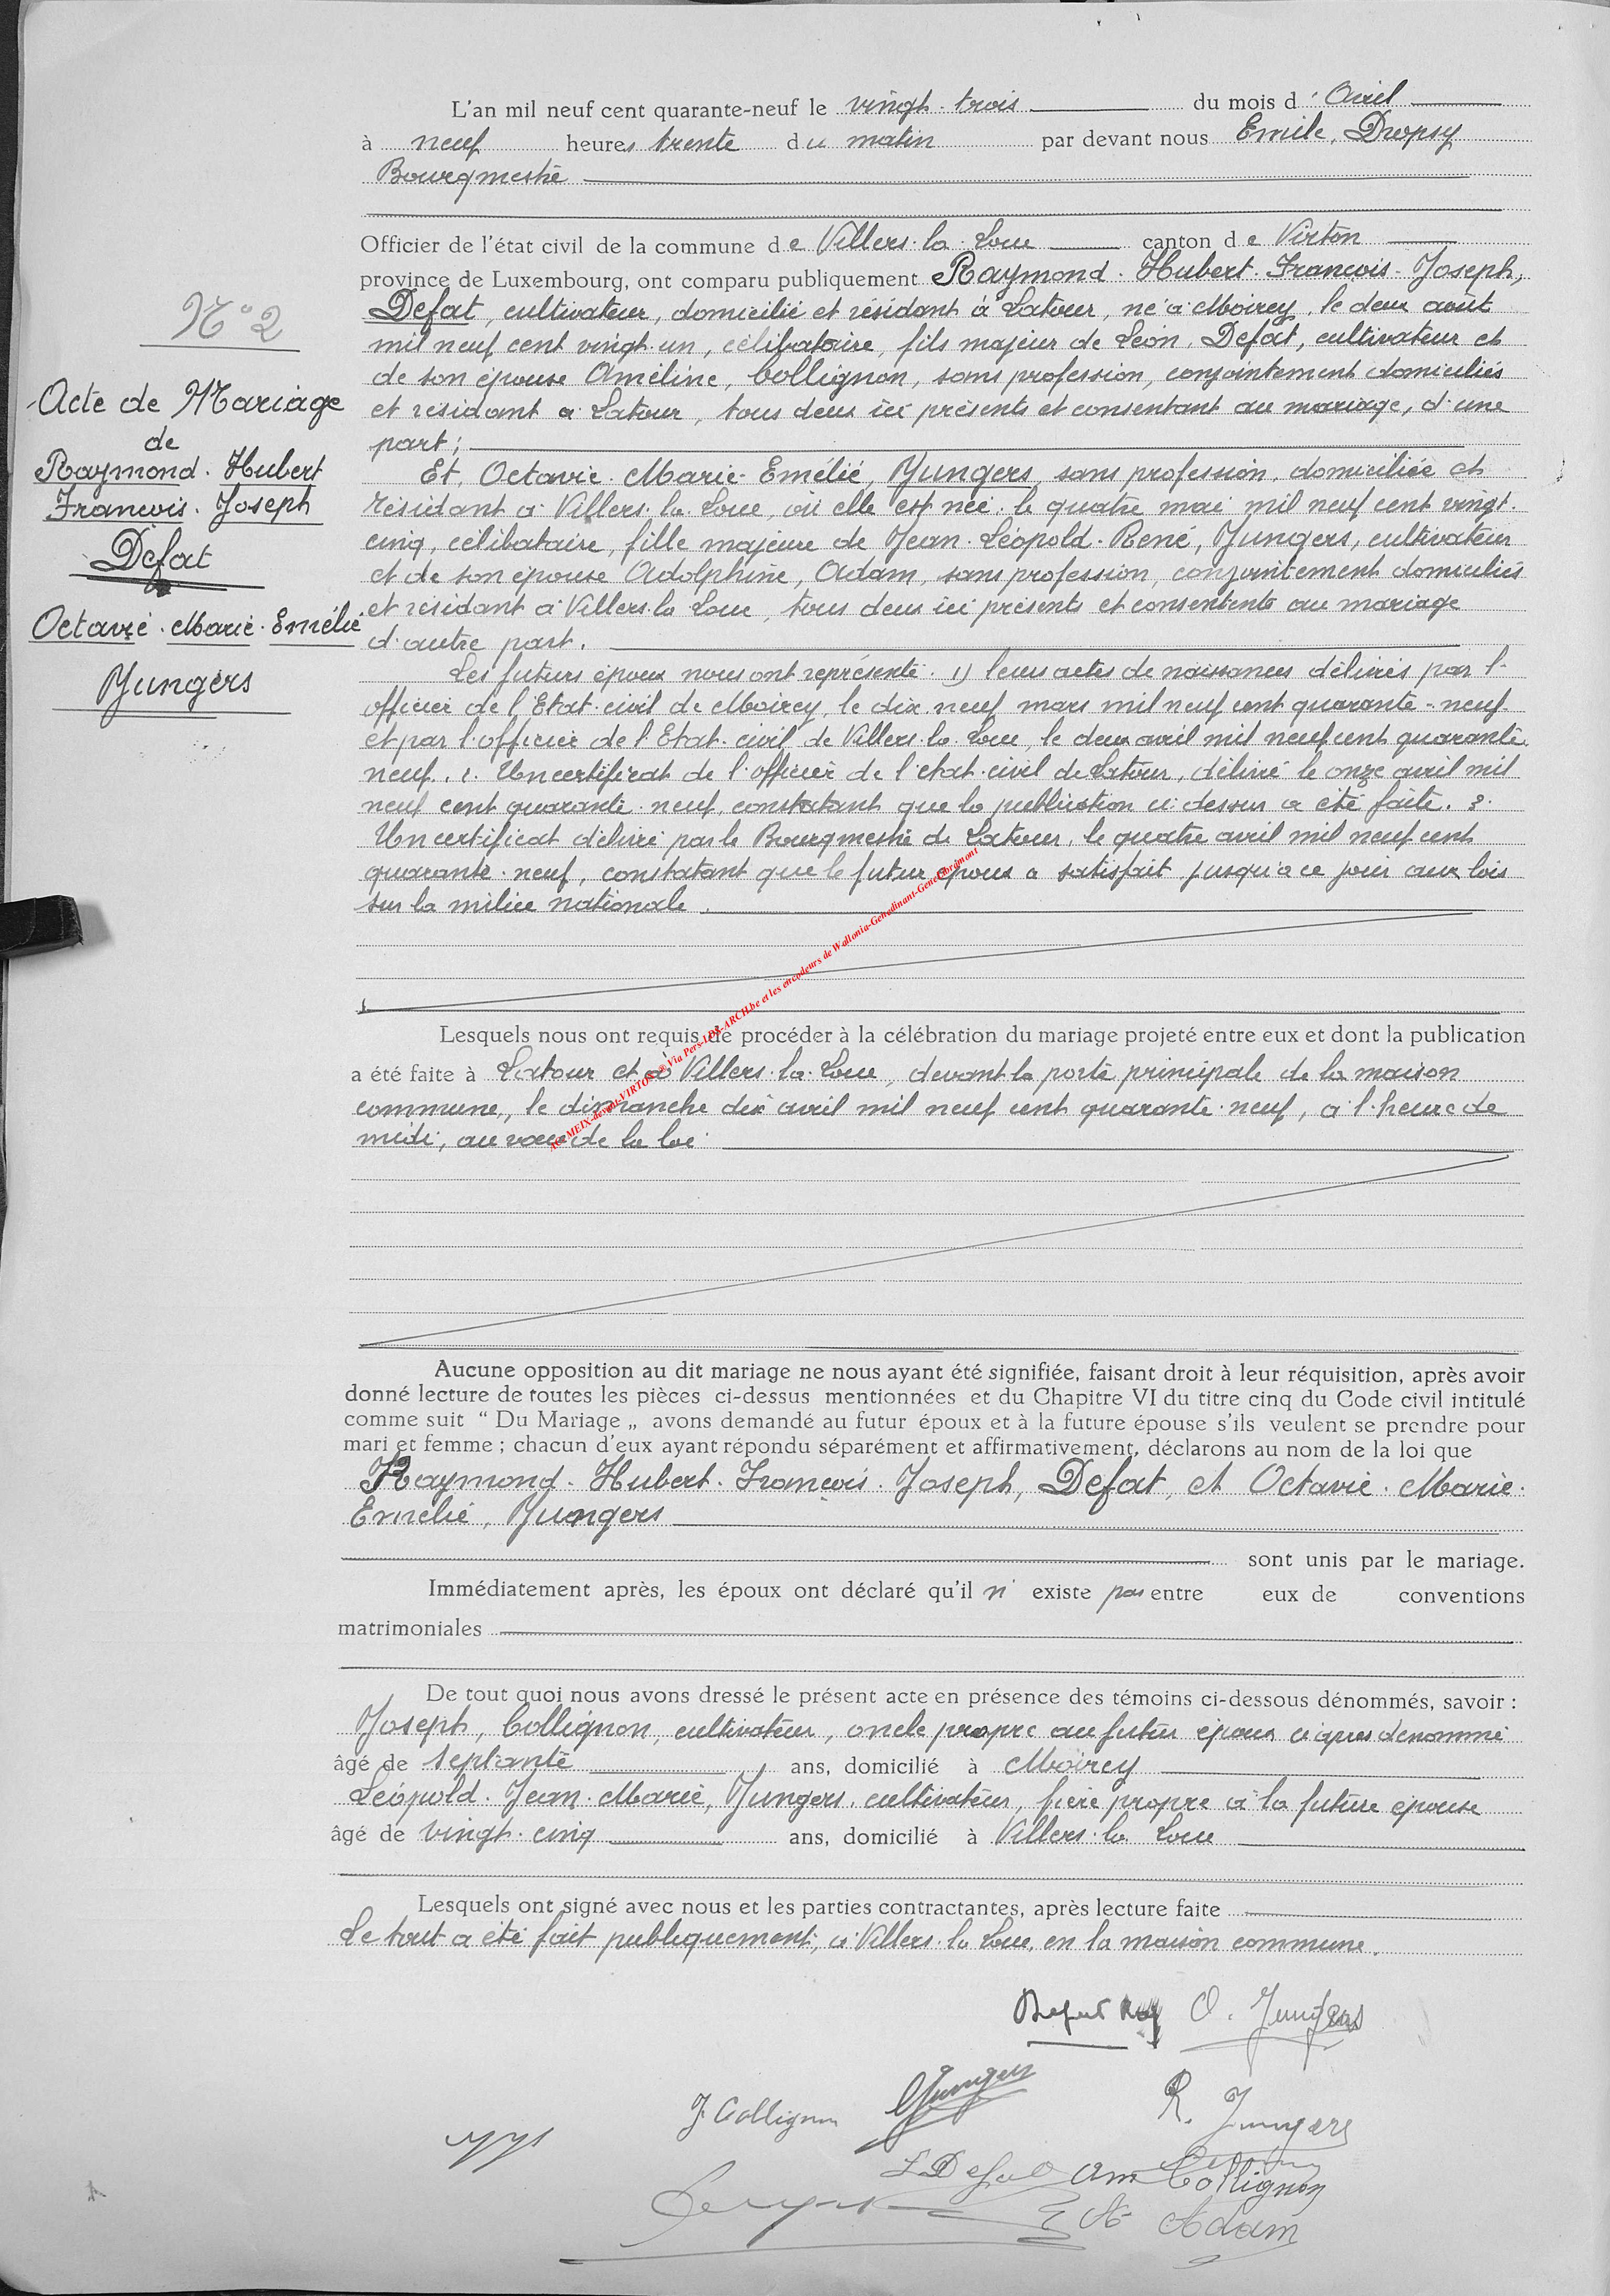 L'an mil neuf cent quarante-neuf le vingt-trois du mois d'Avril
à neuf heures trente du matin par devant nous Emile, Dropsy
Bourgmestre
Officier de l'état civil de la commune de Villers-la-Loue canton de Virton
province de Luxembourg, ont comparu publiquement Raymond-Hubert-François-Joseph,
Defat, cultivateur, domicilié et résidant à Latour, né à Moirey, le deux août
mil neuf cent vingt-un, célibataire, fils majeur de Léon, Defat, cultivateur et
de son épouse Améline, Collignon, sans profession, conjointement domiciliés
et résidant à Latour, tous deux ici présents et consentant au mariage, d'une
part;
Et, Octavie-Marie-Emélie, Yungers, sans profession, domiciliée et
résidant à Villers-la-Loue, où elle est née, le quatre mai mil neuf cent vingt-
cinq, célibataire, fille majeure de Jean-Léopold-René, Yungers, cultivateur
et de son épouse Adolphine, Adam, sans profession, conjointement domiciliés
et résidant à Villers-la-Loue, tous deux ici présents et consentents au mariage
d'autre part.
Les futurs époux nous ont représenté: 1) leurs actes de naissances délivrés par l'
officier de l'Etat-civil de Moircy, le dix-neuf mars mil neuf cent quarante-neuf
et par l'officier de l'Etat-civil de Villers-la-Loue, le deux avril mil neuf cent quarante
neuf. Un certificat de l'officier de l'état-civil de Latour, délivré le onze avril mil
neuf cent quarante-neuf, constatant que la publication ci-dessus a été faite. 3.
Un certificat délivré par le Bourgmestre de Latour, le quatre avril mil neuf cent
quarante-neuf, constatant que le futur époux a satisfait jusqu'à ce jour aux lois
sur la milice nationale.
N° 2
Acte de Mariage
de
Raymond-Hubert
François-Joseph
Defat
Octavie-Marie-Emélie
Yungers
AC-MEIX-devant-VIRTON © Via Pers-LUX-ARCH.be et les encodeurs de Wallonia-Genedinant-Genechrémont
Lesquels nous ont requis de procéder à la célébration du mariage projeté entre eux et dont la publication
a été faite à Latour et à Villers-la-Loue, devant la porte principale de la maison
commune, le dimanche dix avril mil neuf cent quarante-neuf, à l'heure de
midi, au vœu de la loi
Aucune opposition au dit mariage ne nous ayant été signifiée, faisant droit à leur réquisition, après avoir
donné lecture de toutes les pièces ci-dessus mentionnées et du Chapitre VI du titre cinq du Code civil intitulé
comme suit “ Du Mariage „ avons demandé au futur époux et à la future épouse s'ils veulent se prendre pour
mari et femme ; chacun d'eux ayant répondu séparément et affirmativement, déclarons au nom de la loi que
Raymond-Hubert-François-Joseph, Defat, et Octavie-Marie-
Emélie, Yungers
sont unis par le mariage.
Immédiatement après, les époux ont déclaré qu'il n'existe pas entre eux de conventions
matrimoniales
De tout quoi nous avons dressé le présent acte en présence des témoins ci-dessous dénommés, savoir :
Joseph, Collignon, cultivateur, oncle propre au futur époux ci après dénommé
âgé de septante ans, domicilié à Moircy
Léopold-Jean-Marie, Yungers, cultivateur, frère propre à la future épouse
âgé de vingt-cinq ans, domicilié à Villers-la-Loue
Lesquels ont signé avec nous et les parties contractantes, après lecture faite
Le tout a été fait publiquement, à Villers-la-Loue, en la maison commune.
Defat Ray O. Jungers
J. Collignon Jungers R. Jungers
L Defat Am Collignon
A Adam